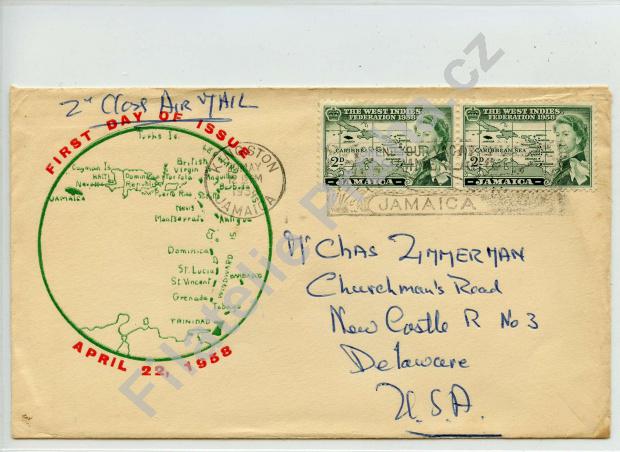 2ⁿᵈ Class AIR MAIL
FIRST DAY OF ISSUE
Turks Is.
Cayman Is.
HAITI
Dominican
Republic
Tortola
British
Virgin
Anguilla
Barbuda
Navassa
Puerto Rico
St. Kitts
JAMAICA
Nevis
Montserrat
Antigua
Dominica
St. Lucia
St. Vincent
BARBADOS
WINDWARD IS.
Grenada
Tobago
TRINIDAD
APRIL 22, 1958
KINGSTON
JAMAICA
THE WEST INDIES
FEDERATION 1958
CARIBBEAN SEA
2D
JAMAICA
THE WEST INDIES
FEDERATION 1958
CARIBBEAN SEA
2D
JAMAICA
JAMAICA
Mr CHAS ZIMMERMAN
Churchman's Road
New Castle R No 3
Delaware
U.S.A.